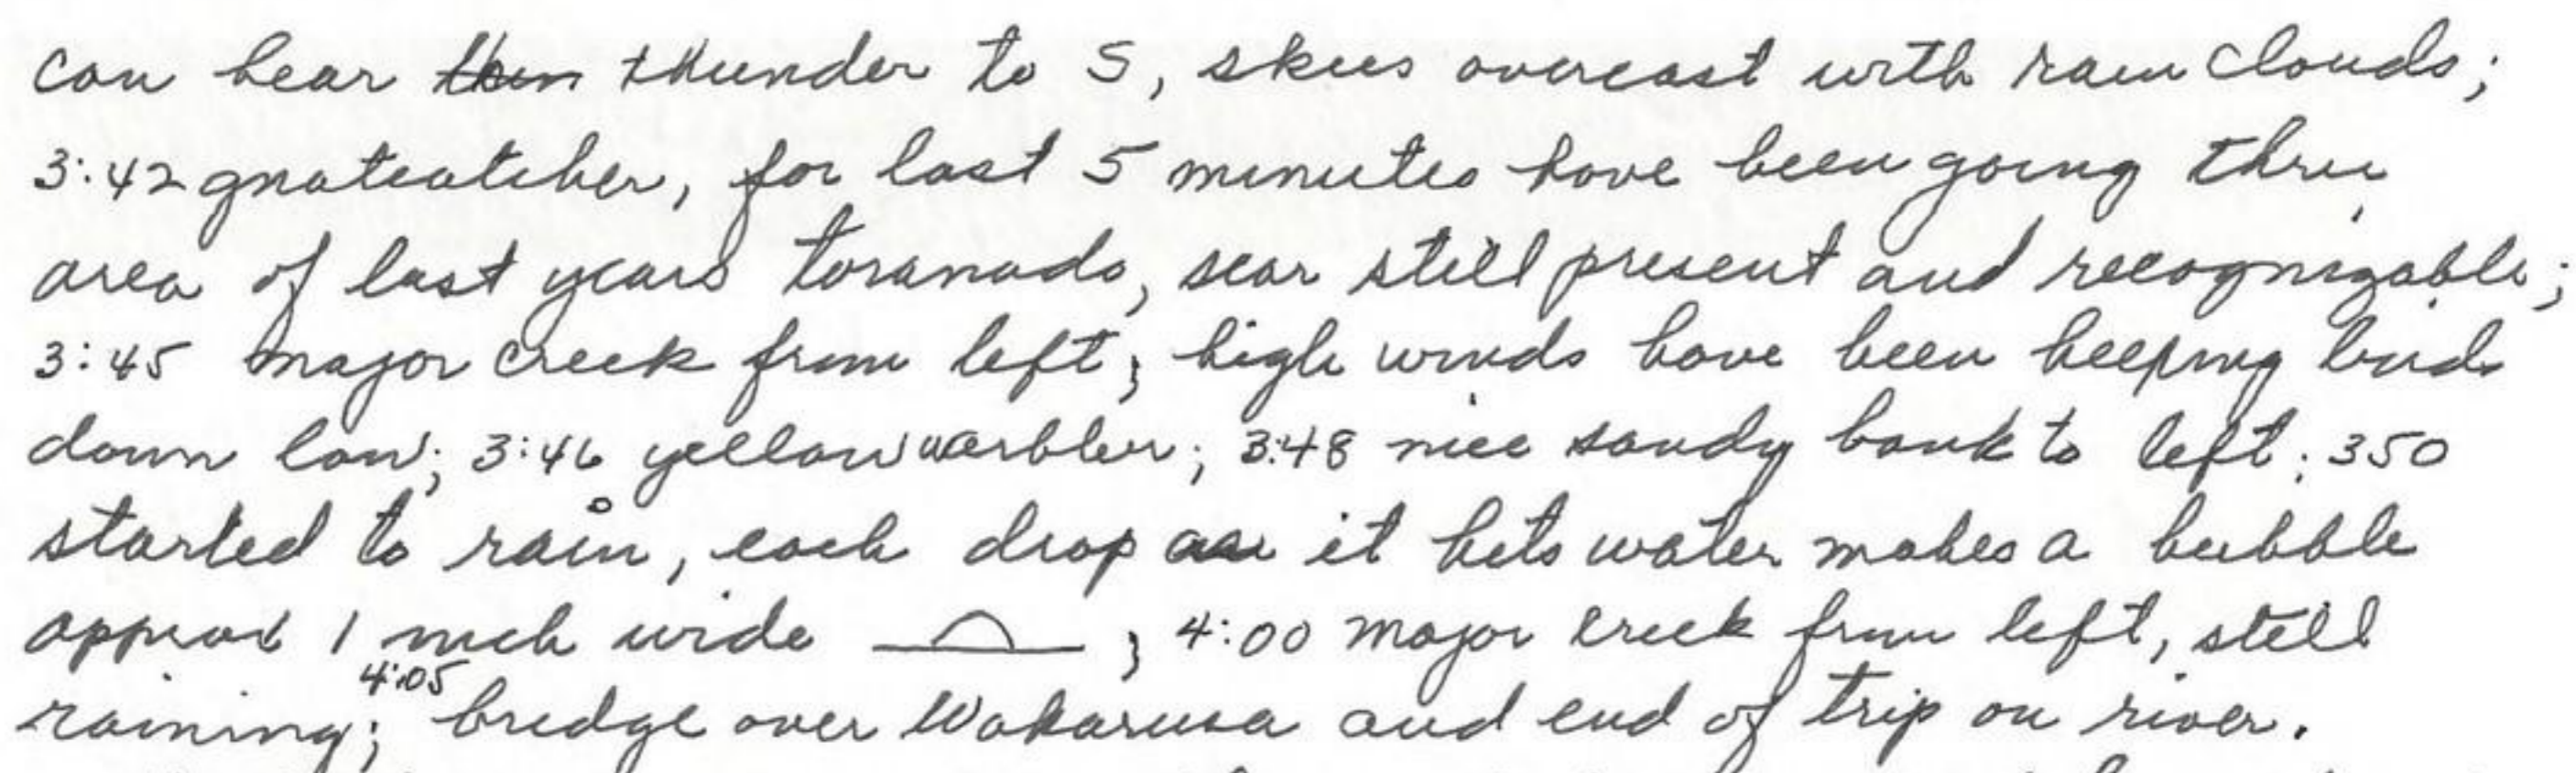 can hear then thunder to S, skies overcast with rain clouds;
3:42 gnatcatcher, for last 5 minutes have been going thru
area of last years toranado, scar still present and recognizable;
3:45 major creek from left; high winds have been keeping birds
down low; 3:46 yellow warbler; 3:48 nice sandy bank to left; 350
started to rain, each drop as it hits water makes a bubble
approx 1 inch wide ; 4:00 major creek from left, still
raining; 4:05 bridge over Wakarusa and end of trip on river.